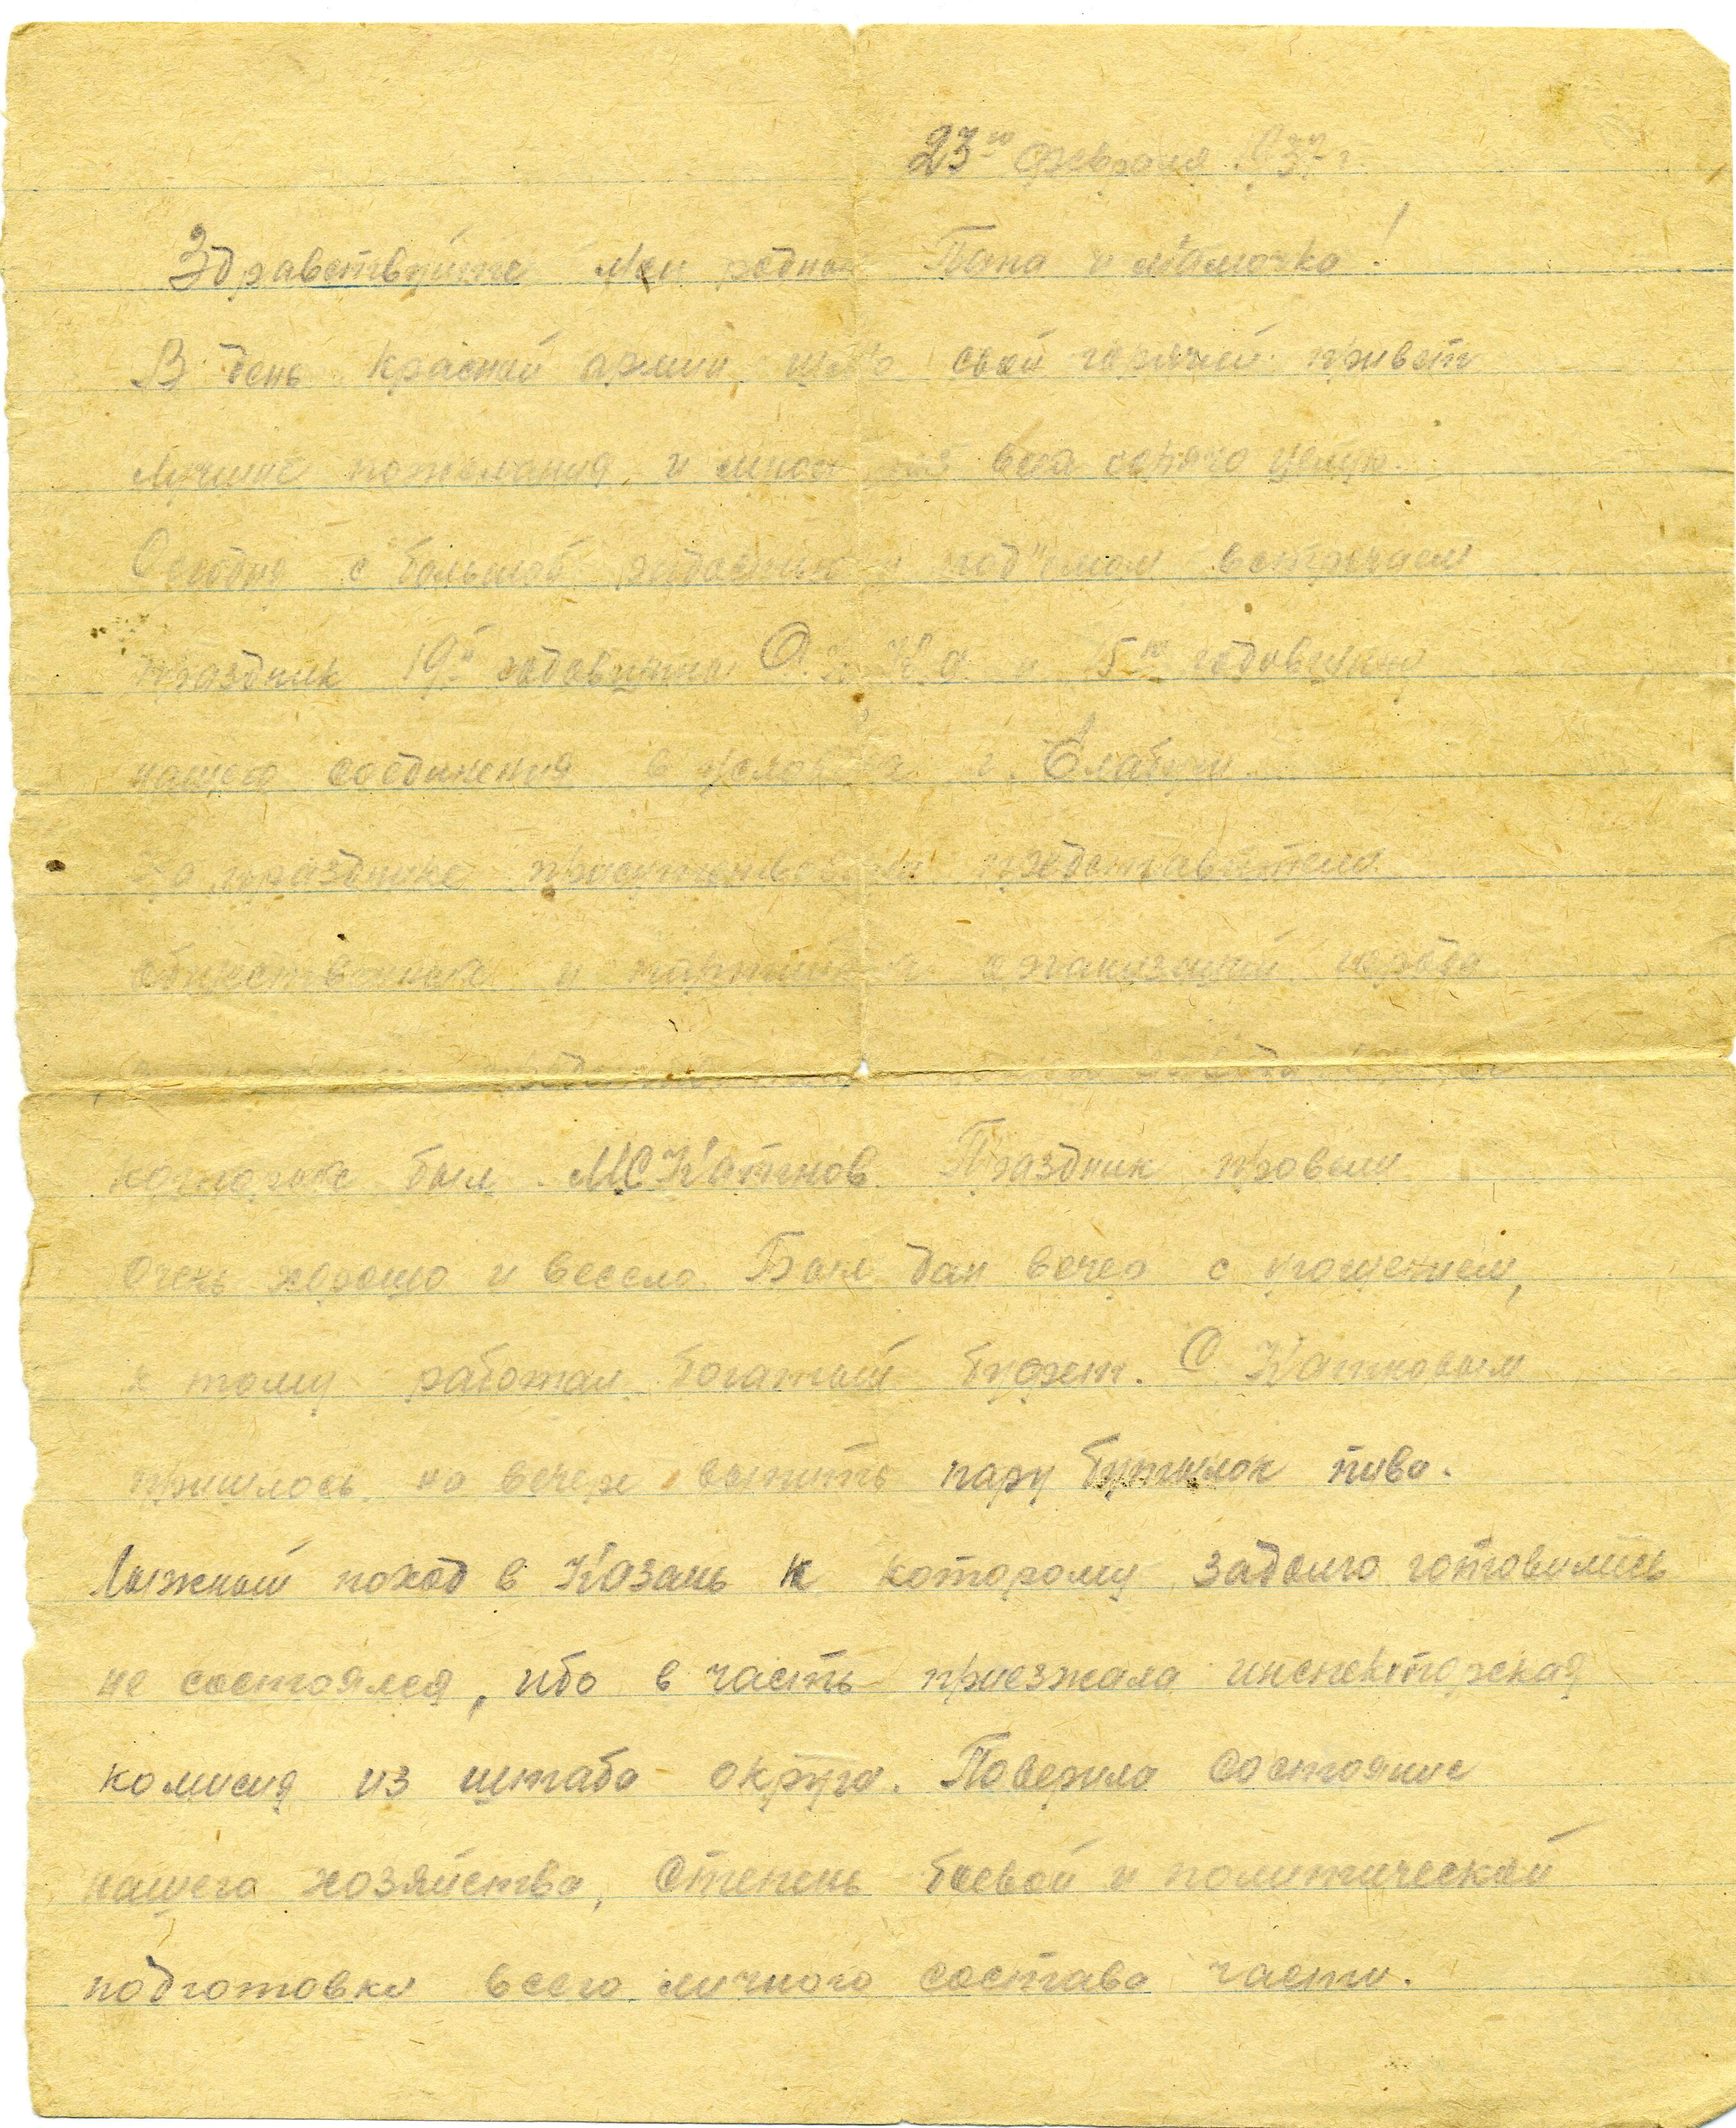 23го февраля 37 г
Здравствуйте мои родные Папа и мамочка!
В день красной армии шлю свой горячий привет
лучшие пожелания и много раз вся горячо целую.
Сегодня с большой радостью и под"емом встречаем
праздник 19й годовщины и 15ю годовщину
нашего соединения в условиях г. Елабуги
На празднике присутствовали представители
общественных и партийных организаций города
которых был МС Катков Праздник провели
очень хорошо и весело Был дан вечер с угощением,
к тому работал богатый буфет. С Катковым
пришлось на вечере выпить пару бутылок пива.
Лыжный поход в Казань к которому задолго готовились
не состоялся, ибо в часть приезжала инспекторская
комисия из штаба округа. Поверила состояние
нашего хозяйства, степень боевой и политической
подготовки всего личного состава части.